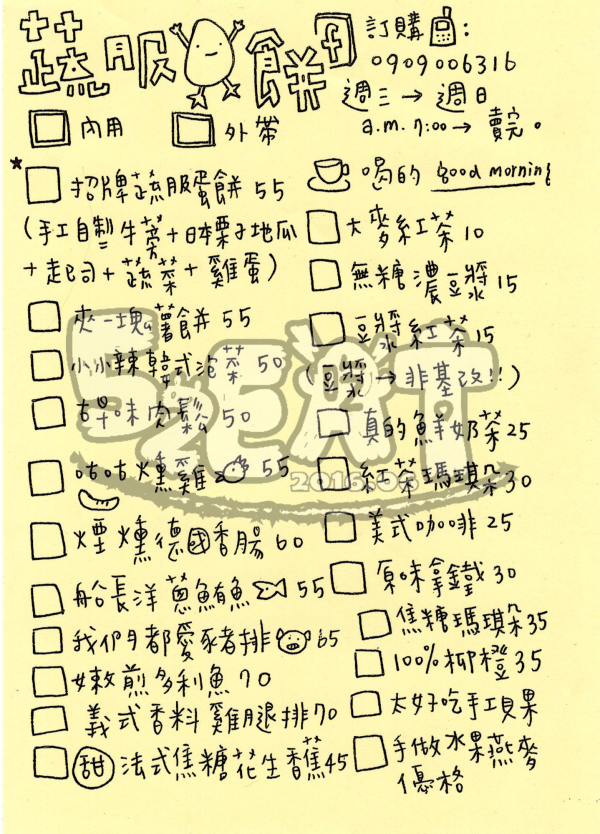 蔬服餅
訂購：
0909006316
週三→週日
a.m.7:00→賣完。
內用
外帶
招牌蔬服蛋餅 55
(手工自製牛蒡+日本栗子地瓜
+起司+蔬菜+雞蛋)
夾一塊薯餅 55
小小辣韓式泡菜 50
古早味肉鬆 50
咕咕燻雞 55
煙燻德國香腸 60
船長洋蔥鮪魚 55
我們都愛豬排 65
嫩煎多利魚 70
義式香料雞腿排 70
甜 法式焦糖花生香蕉 45
喝的 good morning
大麥紅茶 10
無糖濃豆漿 15
豆漿紅茶 15
(豆漿→非基改!!)
真的鮮奶茶 25
紅茶瑪琪朵 30
美式咖啡 25
原味拿鐵 30
焦糖瑪琪朵 35
100%柳橙 35
太好吃手工貝果
手做水果燕麥
優格